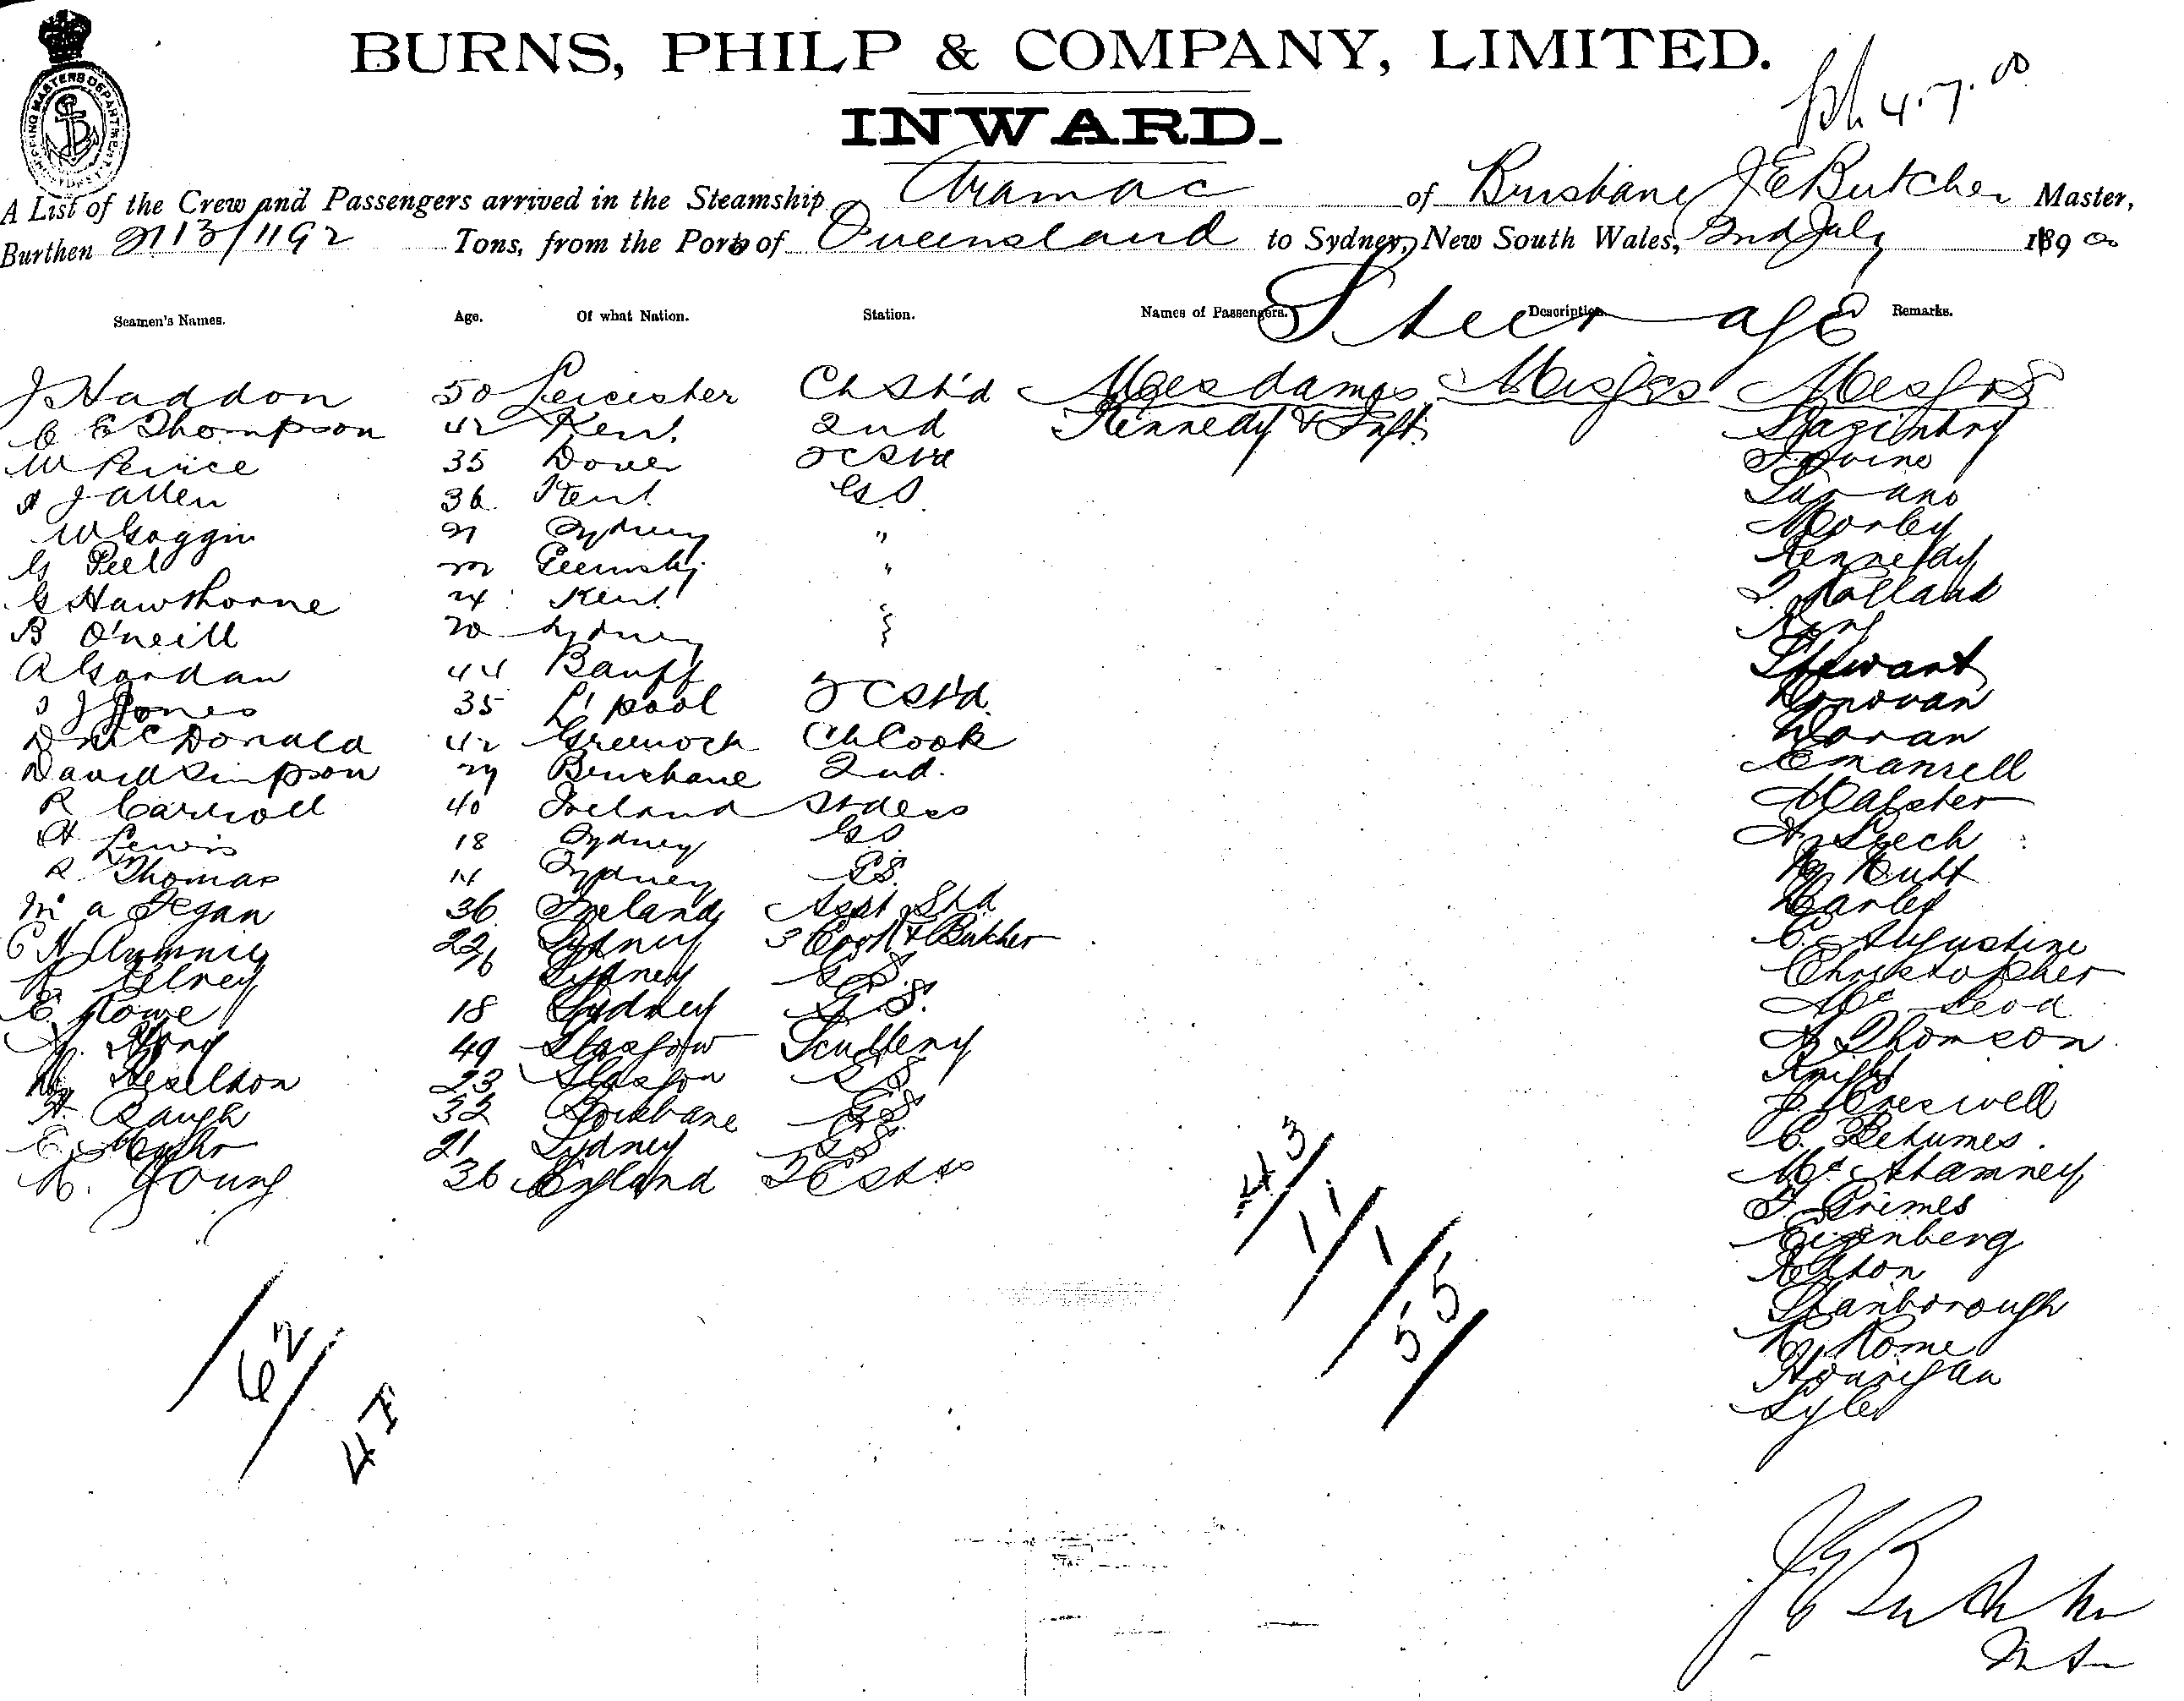 BURNS, PHILP & COMPANY, LIMITED.
4.7.00
INWARD.
SHIPPING MASTERS DEPARTMENT SYDNEY
A List of the Crew and Passengers arrived in the Steamship Aramac of Brisbane J E Butcher Master,
Burthen 2113/1192 Tons, from the Ports of Queensland to Sydney, New South Wales, 2nd July 1900
Seamen's Names. Age. Of what Nation. Station. Names of Passengers. Description. Remarks.
Steerage
J Haddon 50 Leicester Ch St'd Mesdames Misses Messrs
C E Thompson 42 Kent 2nd Kennedy & Inft.
W Peirce 35 Dover
J Allen 36 Kent G.S.
W Goggin 21 Sydney " Morley
G Peel 22 " Kennedy
G Hawthorne 24 Kent T. Holland
B O'neill 20 Sydney King
A Gordan 44 Banff Stewart
J Jones 35 L'pool 2 C St'd. Donovan
D McDonald 42 Greenock Ch Cook Doran
David Simpson 29 Brisbane 2nd. Emanuell
R Carroll 40 Ireland Stdess
H Lewis 18 Sydney GS A. Leech
R Thomas 14 Sydney P.S. Hutt
M A Fegan 36 Ireland Asst Std Harley
22 Sydney 3 Cook & Butcher C. Augustine
16 Sydney G S. Christopher
E. Rowe 18 Sydney G. S. McLeod
49 Glasgow Scullery A Thomson
Heselton 23 Glasgow G S Knight
H. Baugh 32 Brisbane G.S. J. Creswell
E. 21 Sydney G S C. Betumes.
A. Young 36 England 2 C St'ss
F. Grimes
Eisenberg
Stanborough
Rome
Hourigan
Lyle
43
11
1
55
62
47
J E Butcher